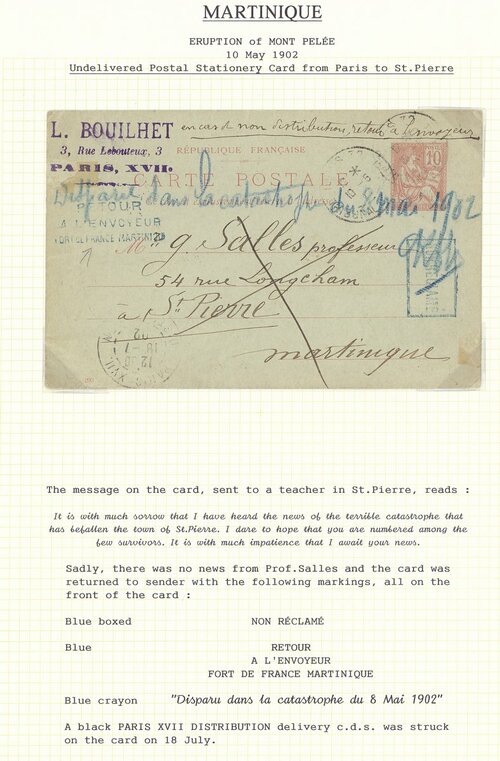 MARTINIQUE
ERUPTION of MONT PELÉE
10 May 1902
Undelivered Postal Stationery Card from Paris to St.Pierre
L. BOUILHET
en cas de non distribution, retour à l'envoyeur
3, Rue Lebouteux, 3
RÉPUBLIQUE FRANÇAISE
10
PARIS, XVII.
CARTE POSTALE
Disparu dans la catastrophe du 8 mai 1902
RETOUR
A L'ENVOYEUR
FORT DE FRANCE MARTINIQUE
Mr G. Salles professeur
54 rue Longcham
à St Pierre
martinique
The message on the card, sent to a teacher in St.Pierre, reads :
It is with much sorrow that I have heard the news of the terrible catastrophe that
has befallen the town of St.Pierre. I dare to hope that you are numbered among the
few survivors. It is with much impatience that I await your news.
Sadly, there was no news from Prof.Salles and the card was
returned to sender with the following markings, all on the
front of the card :
Blue boxed NON RÉCLAMÉ
Blue RETOUR
A L'ENVOYEUR
FORT DE FRANCE MARTINIQUE
Blue crayon "Disparu dans la catastrophe du 8 Mai 1902"
A black PARIS XVII DISTRIBUTION delivery c.d.s. was struck
on the card on 18 July.